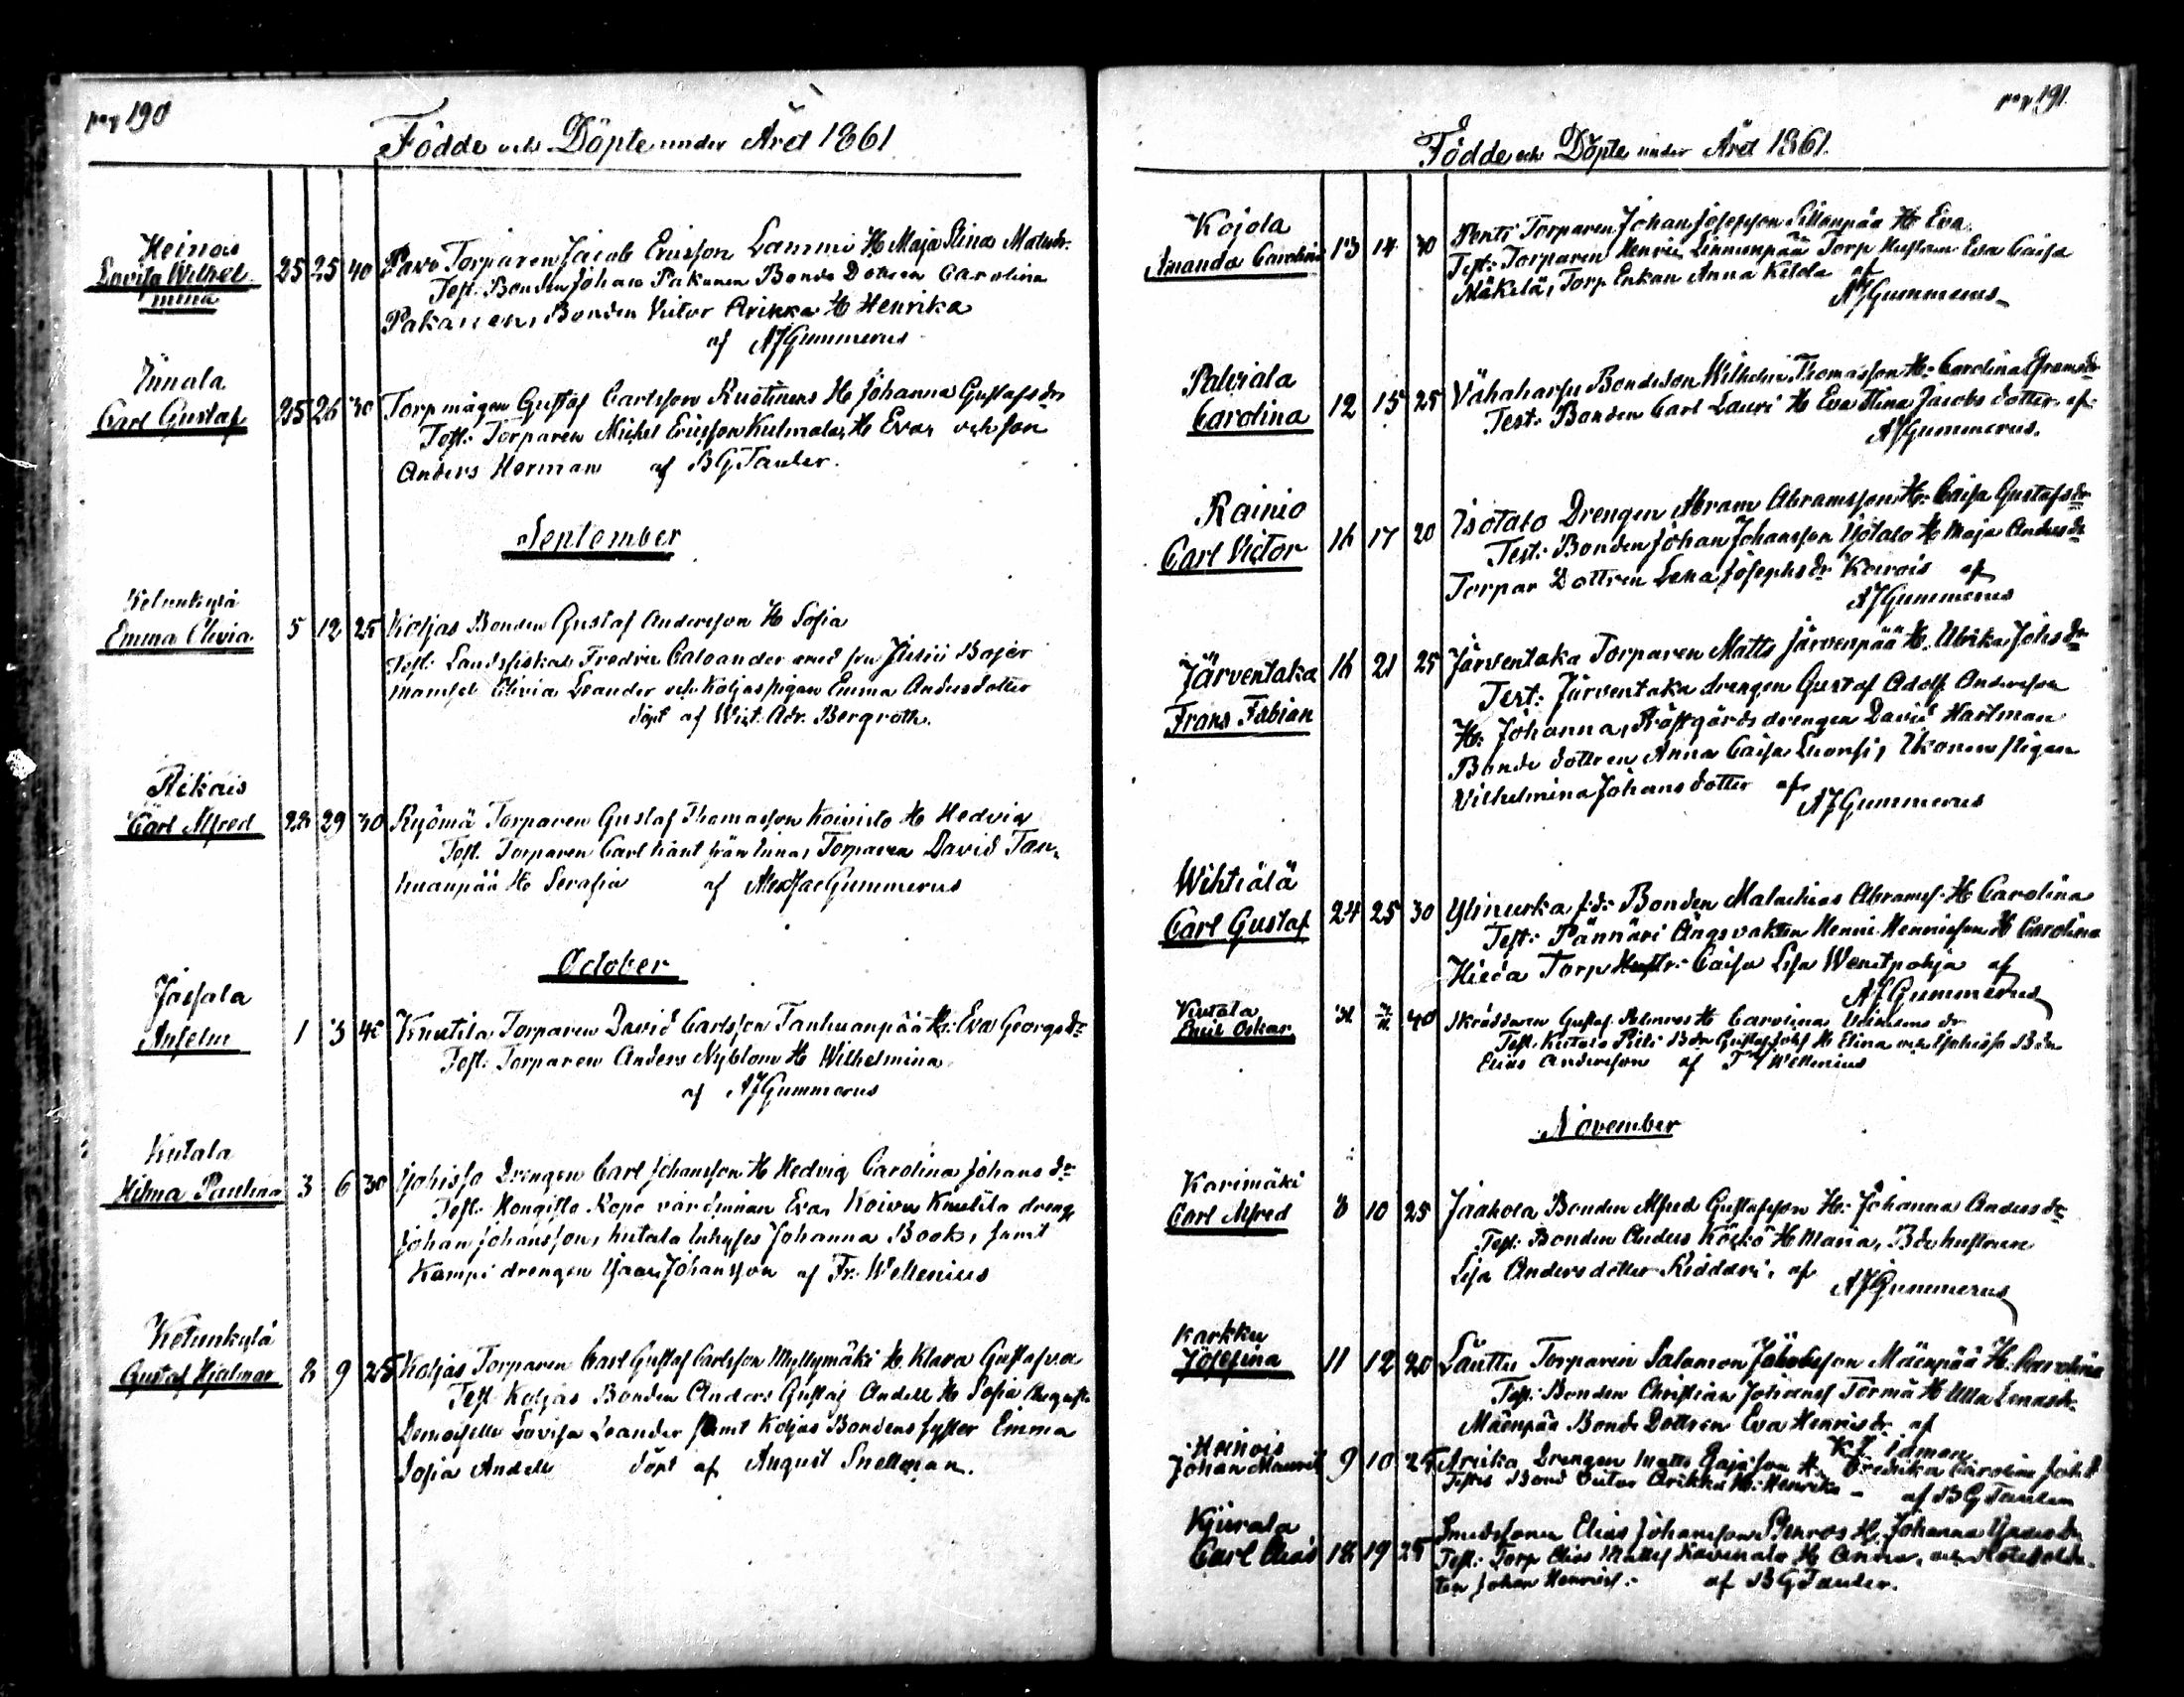 pag 190
Födde och Döpte under Året 1861
Heinois
Lovisa Wilhel-
mina
25 25 40
Pavo Torparen Jacob Ericsson Lammi H Maja Stina Matsdr.
Test. Bonden Johan Pakanen Bonde Dottren Carolina
Pakanen, Bonden Victor Arikka H Henrika
af AJGummerus
Innala
Carl Gustaf
25 26 30
Torpmågen Gustaf Carlsson H Johanna Gustafsdr
Test: Torparen Michel Ericsson Kulmala, H Eva, och son
Anders Herman af BGTauler.
September
Kelunkylä
Emma Olivia
5 12 25
Koljas Bonden Gustaf Andersson H Sofia
Test: Landsfiskal Fredric Caloander med fru Bojer
Mamsel Olivia Leander och Koljas pigan Emma Andersdotter
döpt af Adr. Bergroth.
Rikais
Carl Alfred
28 29 30
Ryömä Torparen Gustaf Thomasson Koivisto H Hedvig
Test. Torparen Carl från Torparen David Tan-
huanpää H Serafia af Alex Jac Gummerus
October
Jassala
Anselm
1 3 40
Knutila, Torparen David Carlsson Tanhuanpää H: Eva Georgsdr
Test: Torparen Anders Nyblom H Wilhelmina
af AJGummerus
Kutala
Hilma Paulina
3 6 30
Drengen Carl Johansson H Hedvig Carolina Johansdr
Test: Hongisto Eva, Koivu Knutila dreng
Johan Johansson, Kutala Johanna Book, samt
Kampi drengen Isaac Johansson af Fr. Wellenius
Kelunkylä
Gustaf Hjalmar
8 9 25
Koljas Torparen Carl Gustaf Carlsson Myllymäki H. Klara Gustafva
Test Koljas Bonden Anders Gustaf Andell H Sofia
Demoiselle Lovisa Leander samt Koljas Bondens syster Emma
Sofia Andell döpt af August Snellman.
pag 191.
Födde och Döpte under Året 1861.
Kojola
Amanda Carolina
13 14 30
Pentti Torparen Johan Josefsson Sillanpää H Eva.
Test: Torparen Henric Linnunpää Torp Hustrun Eva Caisa
Mäkelä, Torp Enkan Anna Kelda af
AJGummerus
Palviala
Carolina
12 15 25
Vähaharju Bondeson Wilhelm Thomasson H: Carolina Efraimsdr
Test: Bonden Carl Lauri H Eva Stina Jacobsdotter af
AJGummerus.
Rainio
Carl Victor
16 17 20
Isotalo Drengen Abram Abramsson H: Caisa Gustafsdr
Test: Bonden Johan Johansson Isotalo H Maja Andersdr
Torpar Dottren Lena Josephsdr af
AJGummerus
Järventaka
Frans Fabian
16 21 25
Järventaka Torparen Matts Järvenpää H. Ulrika Johsdr
Test: Järventaka drengen Gustaf Adolf Andersson
H: Johanna, Pröstgårds drengen David Hartman
Bonde dottren Anna Caisa Pigan
Vilhelmina Johansdotter af
AJGummerus
Wihtiälä
Carl Gustaf
24 25 30
Ylinurka f.d. Bonden Malachias Abramss: H Carolina
Test: Pännäri Ängsvakten Henric Henricsson H Carolina
Hieta Torp Hustr: Caisa Lisa af
AJGummerus
Kutala
Emil Oskar
40
Skräddaren Gustaf H Carolina
Test: Kutala Bdn Gustaf Johs H Elina och Bdn
Elias Andersson af Wellenius
November
Karimäki
Carl Alfred
8 10 25
Jaakola Bonden Alfred Gustafsson H: Johanna Andersdr
Test: Bonden Anders Köckö H Maria, Bdehustrun
Lisa Andersdotter Riddari, af
AJGummerus
Karkku
Josefina
11 12 20
Lauttu Torparen Salamon Jakobsson Mäenpää H. Carolina
Test: Bonden Christian Johanss Törmä H Ulla Enasdr
Mäenpää Bonde Dottren Eva Henricsdr af
Idman
Heinois
Johan Mauritz
9 10 25
Arikka Drengen Matts H. Fredrika Carolina Johsd
Testes Bond Victor Arikka H: Henrika af BGTaulen
Kjurala
Carl Elias
18 19 25
Smedssonen Elias Johansson H. Johanna
Test: Torp Elias Matts H Anna, och
Johan Henrics: af BGTauler.